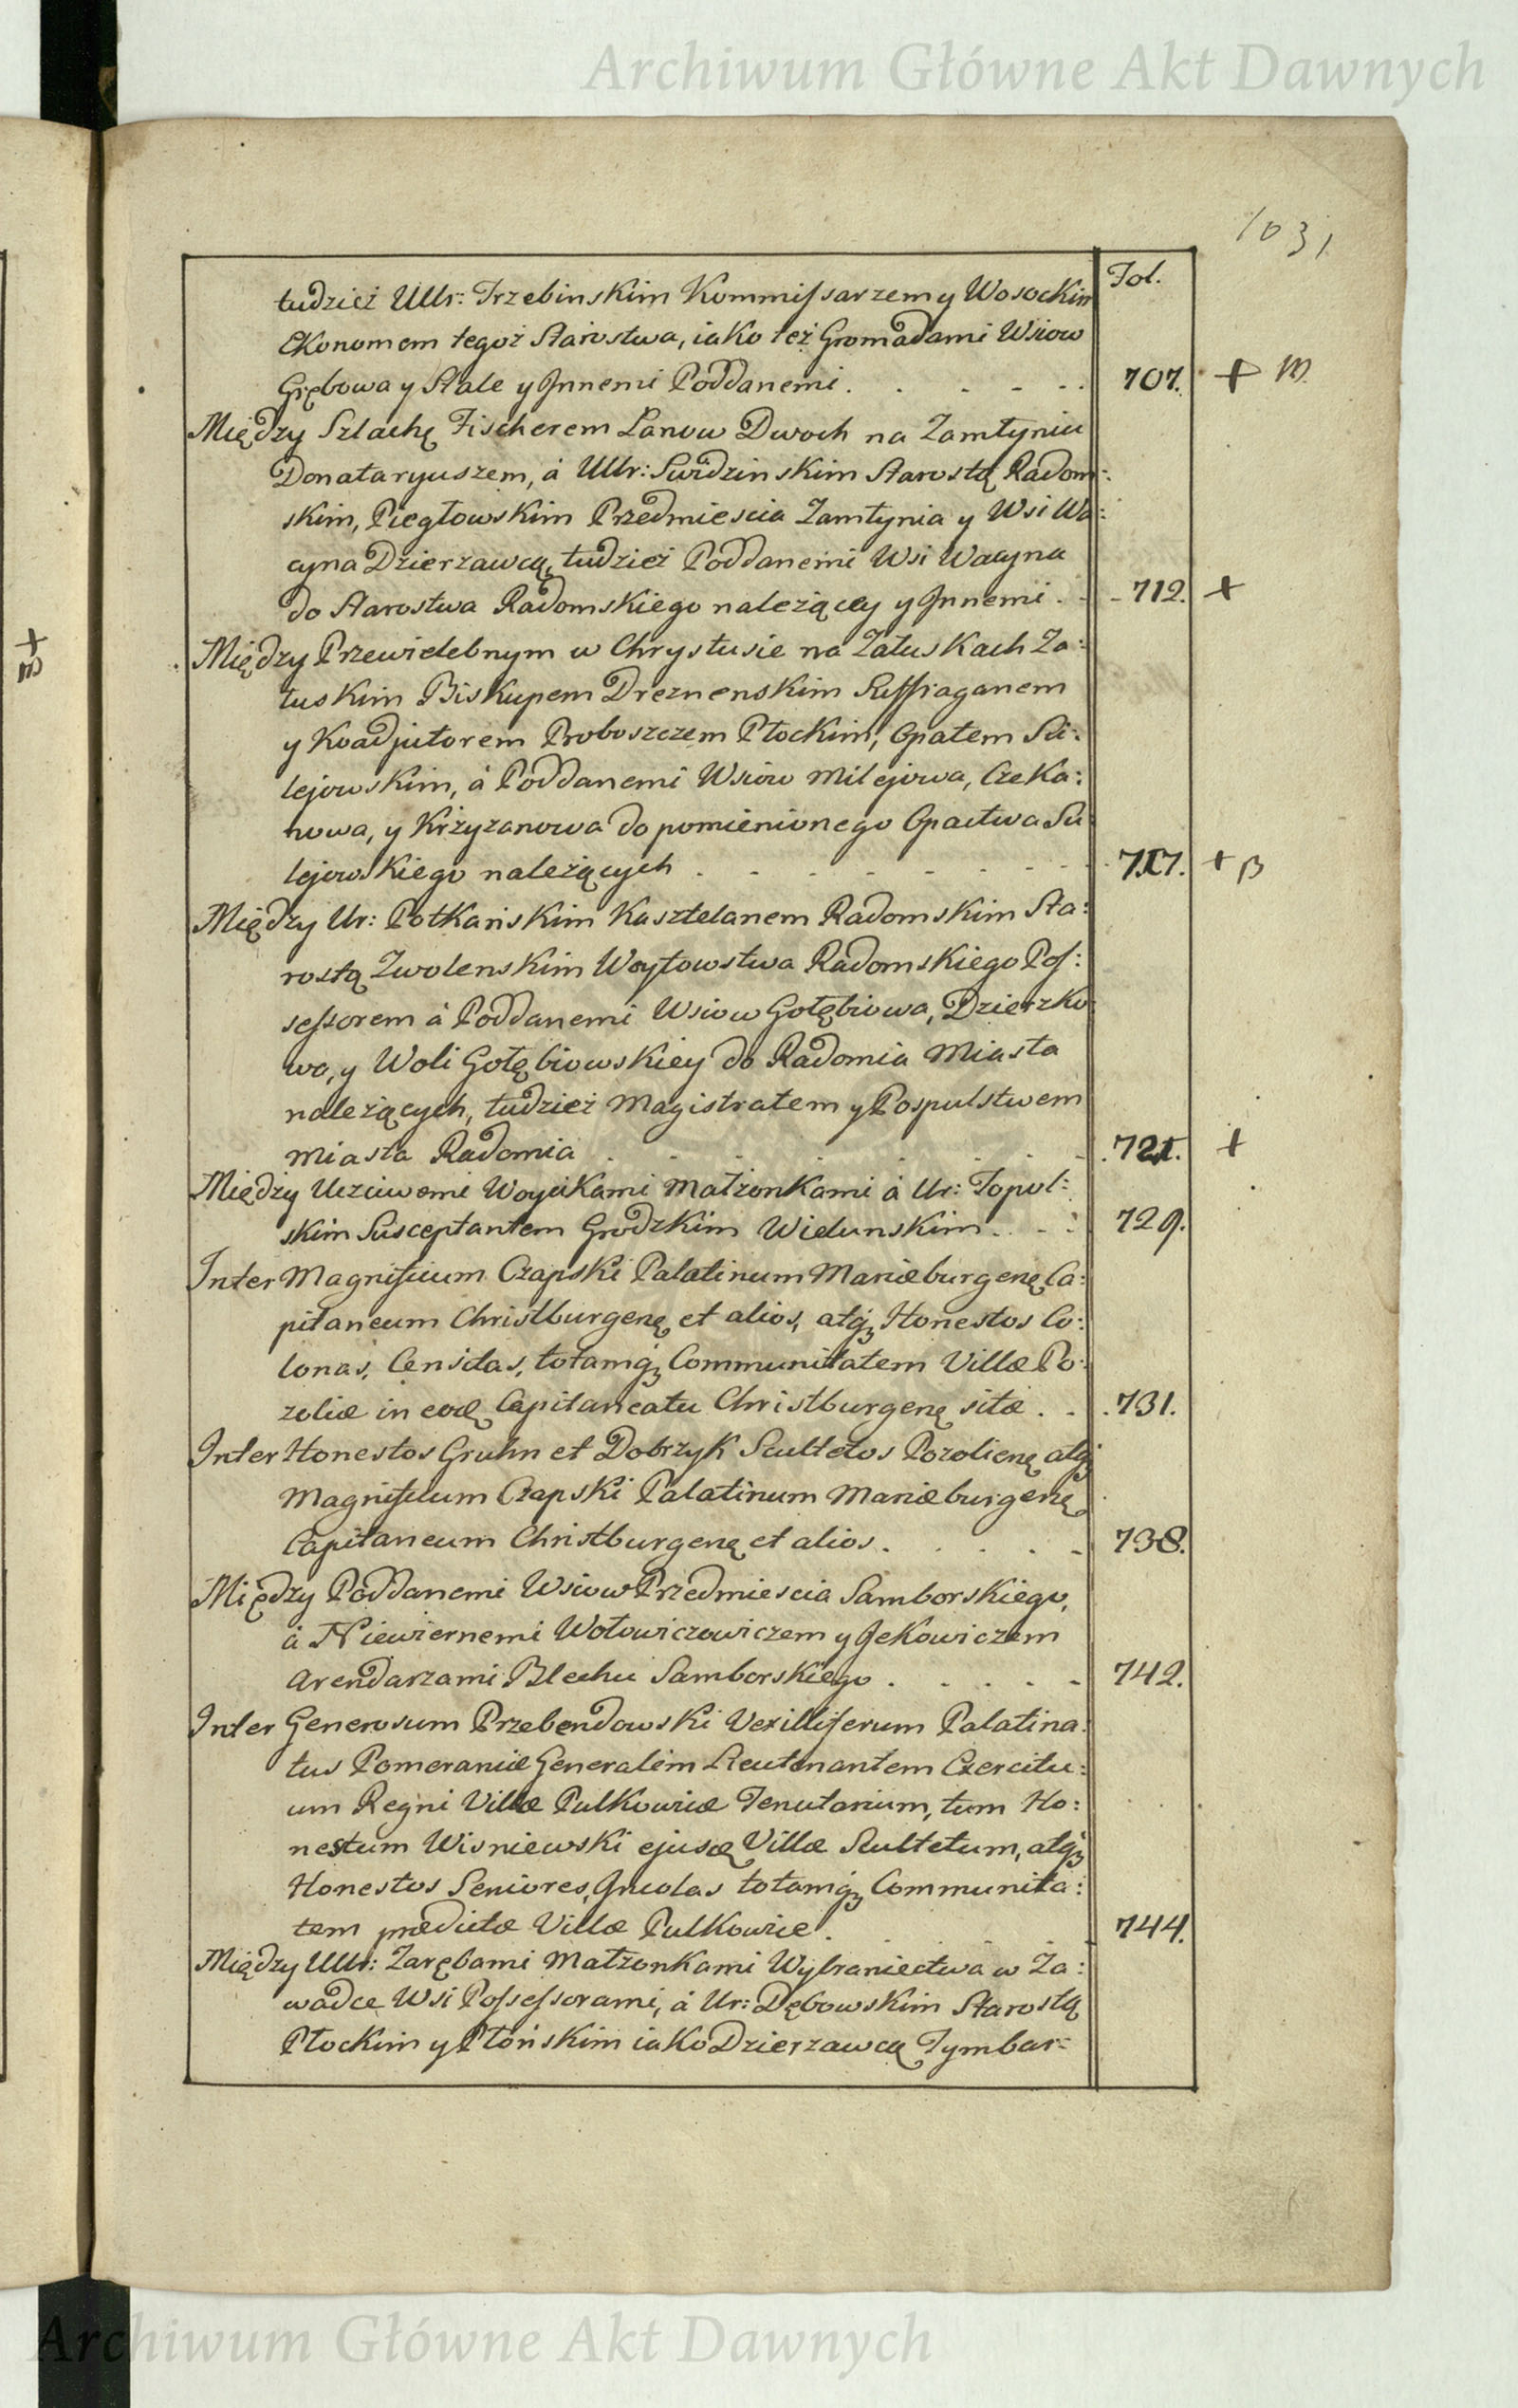 Archiwum Główne Akt Dawnych
1031
Fol.
tudzież UUr: Trzebinskim Kommissarzem y Wosockim
Ekonomem tegoż Starostwa, iako też Gromadami Wsiow
Grębowa y Stale y Innemi Poddanemi . . . . . 707. + m.
Między Szlachę Fischerem Lanow Dwoch na Zamłyniu
Donataryuszem, á UUr: Swidzinskim Starostą Radom:
skim, Piegłowskim Przedmiescia Zamłynia y Wsi Wa:
cyna Dzierzawcą, tudzież Poddanemi Wsi Wacyna
do Starostwa Radomskiego należącey y Innemi . . 712. +
Między Przewielebnym w Chrystusie na Załuskach Za:
łuskim Biskupem Dreznenskim Suffraganem
y Koadjutorem Proboszczem Płockim, Opatem Su:
lejowskim, á Poddanemi Wsiow Milejowa, Czeka:
nowa, y Krżyzanowa do pomienionego Opactwa Su
lejowskiego należących . . . . . . . 717. + B
Między Ur: Potkańskim Kasztelanem Radomskim Sta:
rostą Zwolenskim Woytowstwa Radomskiego Pos:
sessorem á Poddanemi Wsiow Gołębiowa, Dzierzko
wa, y Woli Gołębiowskiey do Radomia Miasta
należących, tudzież Magistratem y Pospulstwem
Miasta Radomia . . . . . . . . 721. +
Między Uczciwemi Woycikami Małżonkami á Ur: Topol:
skim Susceptantem Grodzkim Wielunskim . . . 729.
Inter Magnificum Czapski Palatinum Mariæburgenę Ca:
pitaneum Christburgenę et alios, atq; Honestos Co:
lonas, Censitas, totamq; Communitatem Villæ Po:
zoliæ in eodę Capitaneatu Christburgenę sitæ . . 731.
Inter Honestos Gruhn et Dobrzyk Scultetos Pozolienę atq;
Magnificum Czapski Palatinum Mariæburgenę
Capitaneum Christburgenę et alios . . . . . 738.
Między Poddanemi Wsiow Przedmiescia Samborskiego,
á Niewiernemi Wołowiczowiczem y Jekowiczem
Arendarzami Blechu Samborskiego . . . . . 742.
Inter Generosum Przebendowski Vexilliferum Palatina:
tus Pomeraniæ Generalem Leutenantem Exercitu:
um Regni Villæ Pulkowicæ Tenutarium, tum Ho:
nestum Wisniewski ejusdę Villæ Scultetum, atq;
Honestos Seniores, Incolas totamq; Communita:
tem prædictæ Villæ Pulkowice . . . . . 744.
Między UUr: Zarębami Małżonkami Wybraniectwa w Za:
wadce Wsi Possessorami, á Ur: Dębowskim Starostą
Płockim y Płońskim iako Dzierzawcą Tymbar:
Archiwum Główne Akt Dawnych